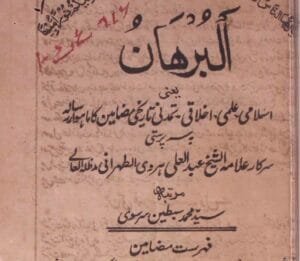 البرهان
یعنی
اسلامی، علمی، اخلاقی، تمدنی، تاریخی مضامین کا ماہوار رسالہ
بسرپرستی
سرکار علامہ الشیخ عبد العلی ہروی الطہرانی مدظلہ العالی
مرتبہ
سید محمد سبطین سرسوی
فہرست مضامین